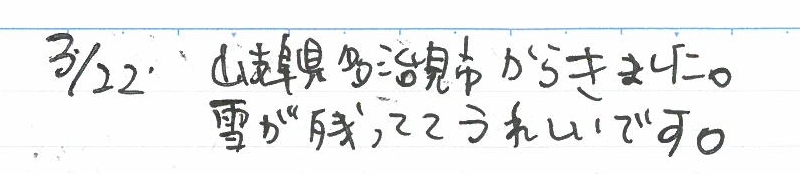 3/22. 岐阜県多治見市からきました。
雪が残っててうれしいです。